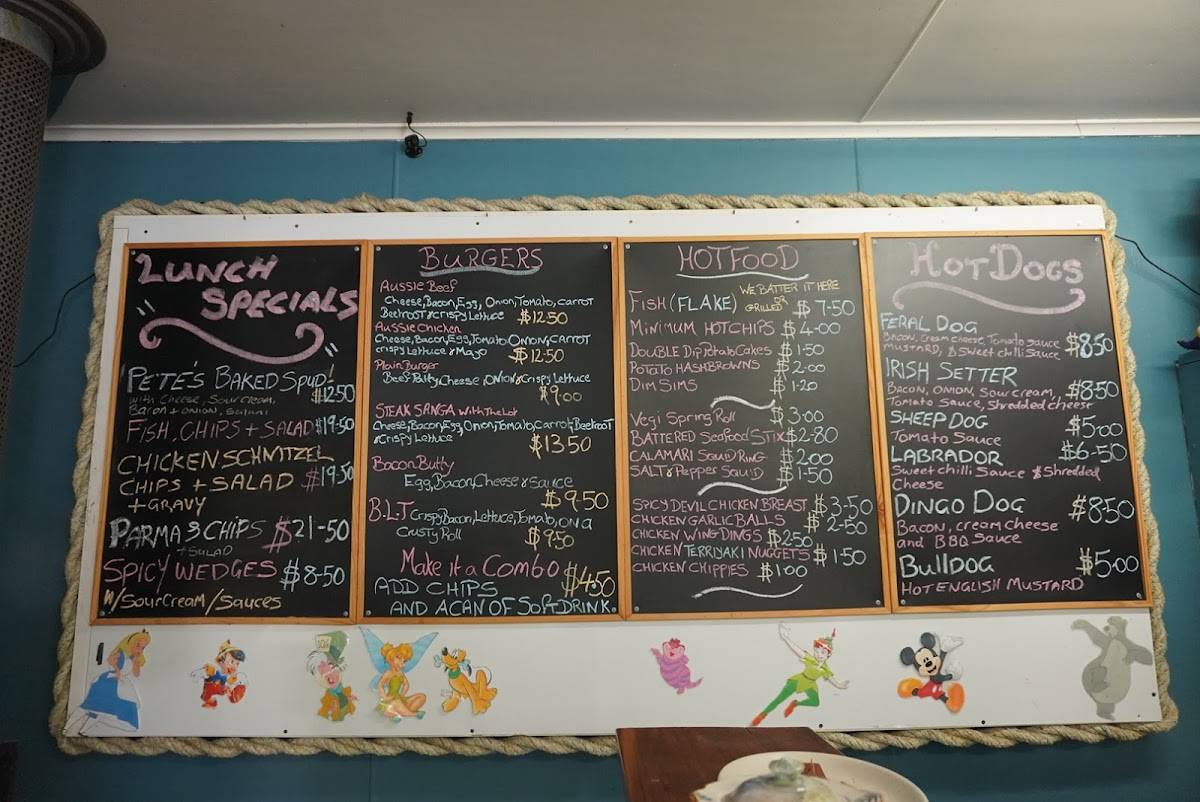 LUNCH
SPECIALS
PETE'S BAKED SPUD!
with cheese, sour cream, $12.50
Bacon + onion, Salami
FISH, CHIPS + SALAD $19.50
CHICKEN SCHNITZEL
CHIPS + SALAD $19.50
+ GRAVY
PARMA & CHIPS $21-50
+ SALAD
SPICY WEDGES $8-50
W/SOUR CREAM/SAUCES
BURGERS
AUSSIE BEEF
Cheese, Bacon, Egg, Onion, Tomato, Carrot
Beetroot & crispy Lettuce $12.50
AUSSIE CHICKEN
Cheese, Bacon, Egg, Tomato ONION, CARROT
crispy Lettuce & Mayo $12.50
Plain Burger
Beef Patty, Cheese, ONION & Crispy Lettuce
$9.00
STEAK SANGA With The Lot
Cheese, Bacon, Egg, Onion, Tomato, Carrot, Beetroot
& Crispy Lettuce $13.50
Bacon Butty
Egg, Bacon, Cheese & Sauce
$9.50
B.L.T Crispy Bacon, Lettuce, Tomato, on a
Crusty Roll $9.50
Make it a Combo $4.50
ADD CHIPS
AND A CAN OF SOFT DRINK
HOT FOOD
WE BATTER IT HERE
OR
GRILLED
FISH (FLAKE) $7.50
MINIMUM HOT CHIPS $4.00
DOUBLE Dip Potato Cakes $1.50
POTATO HASHBROWNS $2.00
DIM SIMS $1.20
Vegi Spring Roll $3.00
BATTERED Seafood STIX $2-80
CALAMARI SQUID RING $2.00
SALT & Pepper SQUID $1-50
SPICY DEVIL CHICKEN BREAST $3-50
CHICKEN GARLIC BALLS $2-50
CHICKEN WING DINGS $2.50
CHICKEN TERRIYAKI NUGGETS $1.50
CHICKEN CHIPPIES $1.00
HOT DOGS
FERAL DOG
BACON, cream cheese, Tomato sauce
MUSTARD, & Sweet chilli sauce $8.50
IRISH SETTER
BACON, ONION, SOUR cream, $8.50
Tomato Sauce, Shredded cheese
SHEEP DOG $5.00
Tomato Sauce
LABRADOR $6-50
Sweet chilli Sauce & Shredded
Cheese
DINGO DOG $8.50
Bacon, cream cheese
and BBQ sauce
BullDOG $5.00
HOT ENGLISH MUSTARD